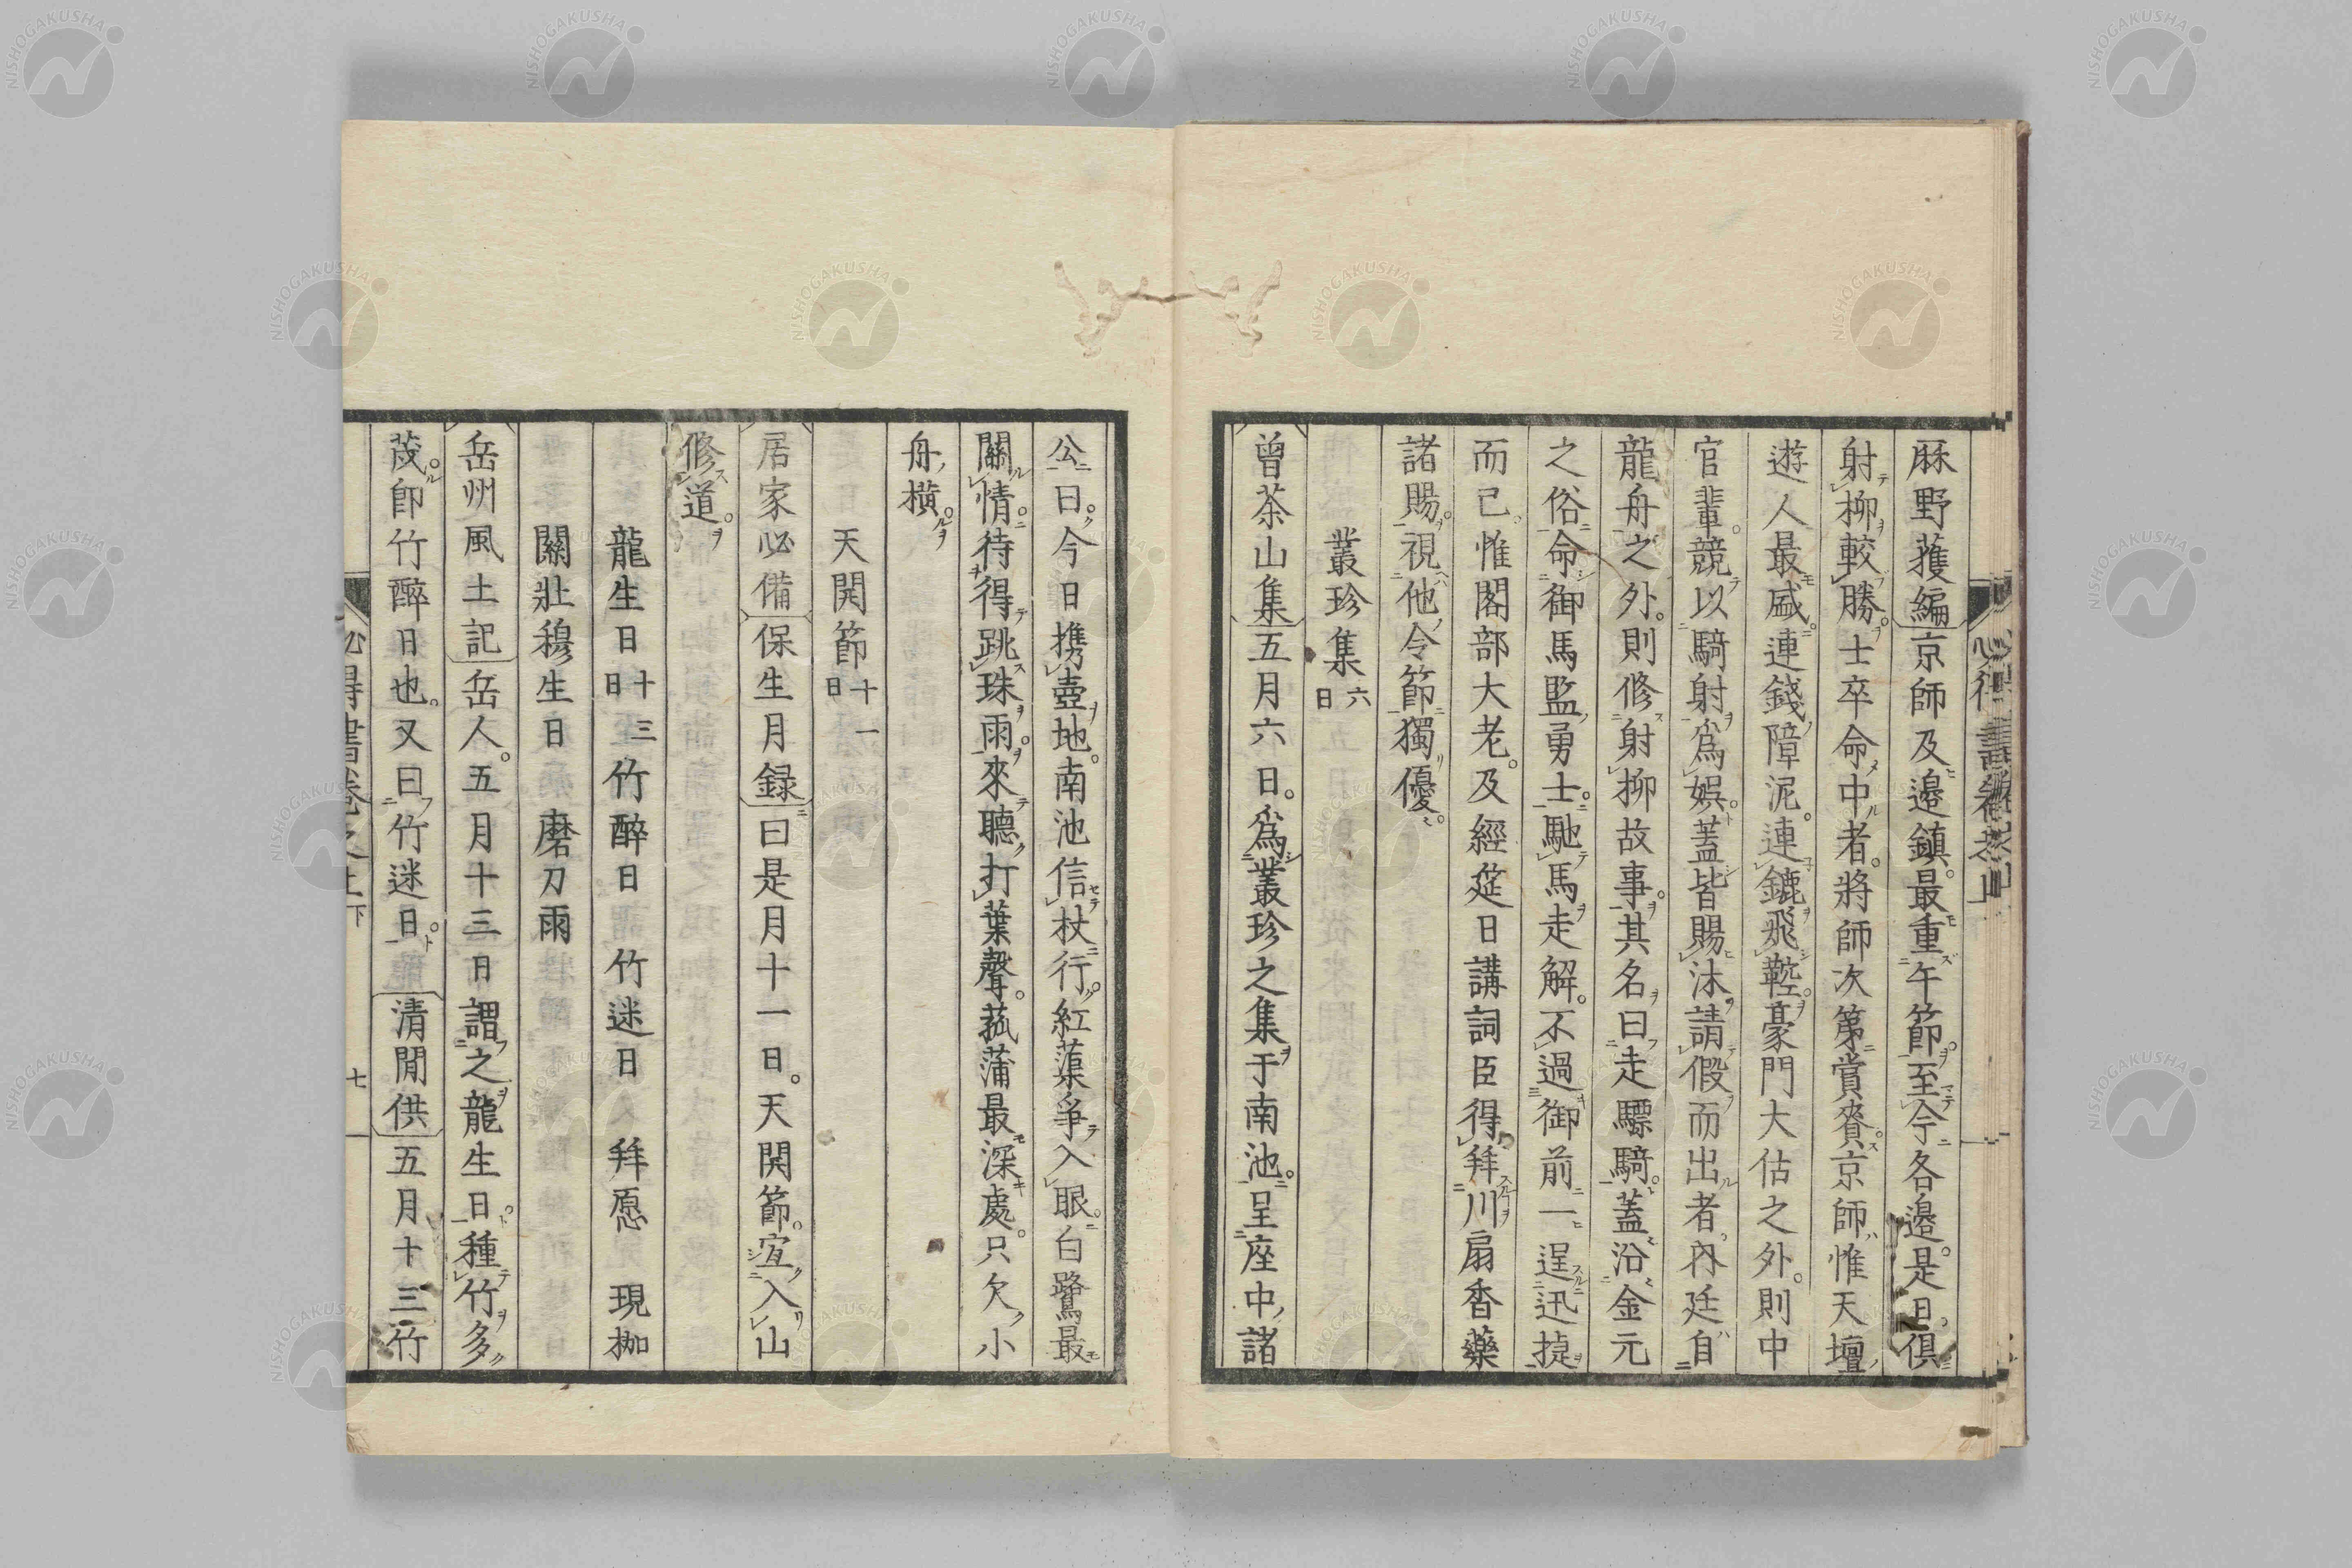 麻野蒦編京師及邉鎮。最重午節。至今各邉。是日。俱
射柳較勝。士卒命中者。將師次第賞賚。京師惟天壇
遊人最盛。連錢障泥。連鑣飛鞚。豪門大估之外。則中
官輩。競以騎射爲娯。蓋皆賜沐請假而出者。內廷自
龍舟之外。則修射柳故事。其名曰走驃騎。蓋沿金元
之俗。命御馬監勇士。馳馬走解。不過御前一逞迅㨗
而已。惟閣部大老。及經筵日講詞臣得拜川扇香藥
諸賜。視他令節獨優。
叢珍集六日
曾茶山集五月六日。爲叢珍之集于南池。呈座中諸
公曰。今日携壺地。南池信杖行。紅蕖爭入眼。白鷺最
關情。待得跳珠雨。來聽打葉聲。菰蒲最深處。只欠小
舟横。
天開節十一日
居家必備保生月録曰是月十一日。天開節。宜入山
修道。
龍生日十三日 竹醉日 竹迷日 拜愿 現枷
關壯穆生日 磨刀雨
岳州風土記岳人。五月十三日謂之龍生日。種竹多
茂。卽竹醉日也。又曰竹迷日。清閒供五月十三竹
必得書卷之上下
七
NISHOGAKUSHA